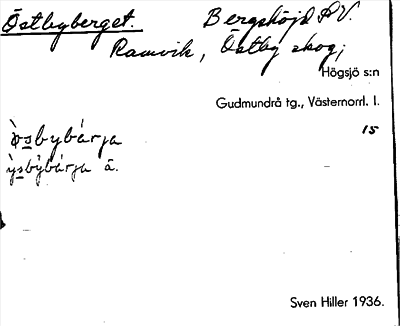 Östbyberget. Bergshöjd NV.
Ramvik, Östby skog,
Högsjö s:n
Gudmundrå tg., Västernorrl. l.
15
ò̀sbybárja
ỳsbỳbárja ä.
Sven Hiller 1936.